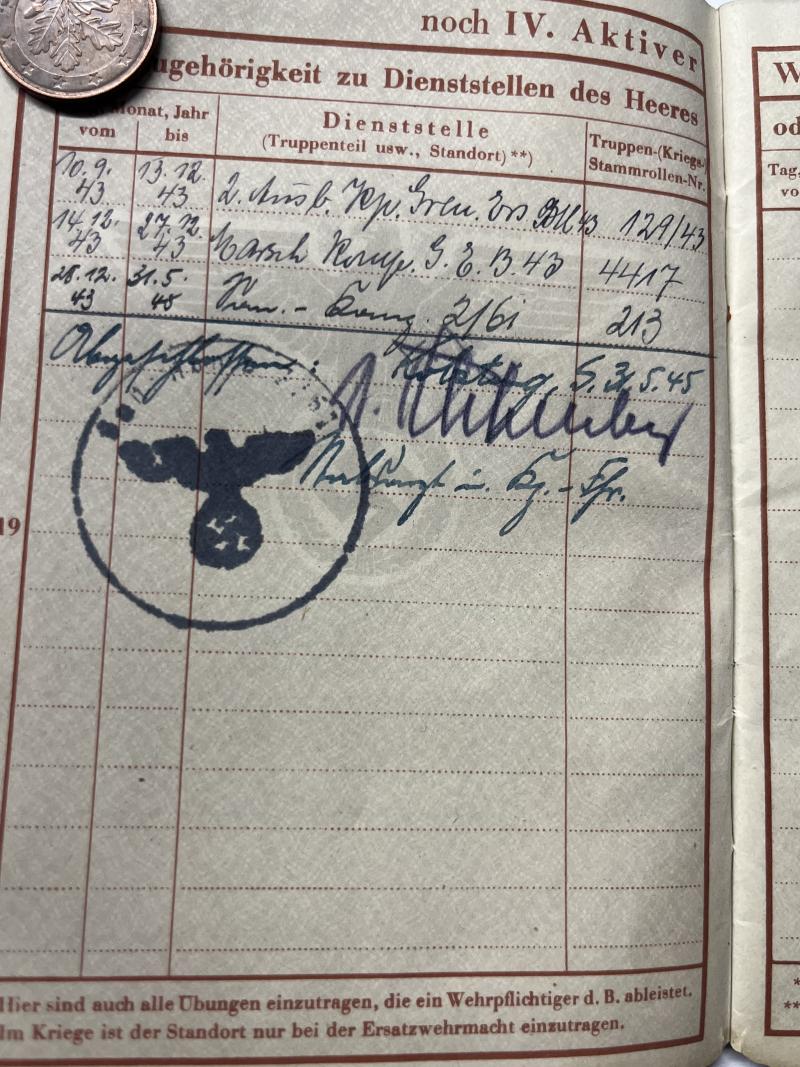 noch IV. Aktiver
ugehörigkeit zu Dienststellen des Heeres
Monat, Jahr
vom
bis
Dienststelle
(Truppenteil usw., Standort)**)
Truppen-(Kriegs-)
Stammrollen-Nr.
10.9.
43
13.12.
43
2. Ausb. Kp. Gren. Ers Btl 43
129/43
14.12.
43
27.12.
43
Marsch Komp. G. E. B. 43
4417
28.12.
43
31.5.
45
2/61
213
Abgeschlossen:
5. 31.5.45
19
Hier sind auch alle Übungen einzutragen, die ein Wehrpflichtiger d. B. ableistet.
Im Kriege ist der Standort nur bei der Ersatzwehrmacht einzutragen.
W
od
Tag,
vo
*
**